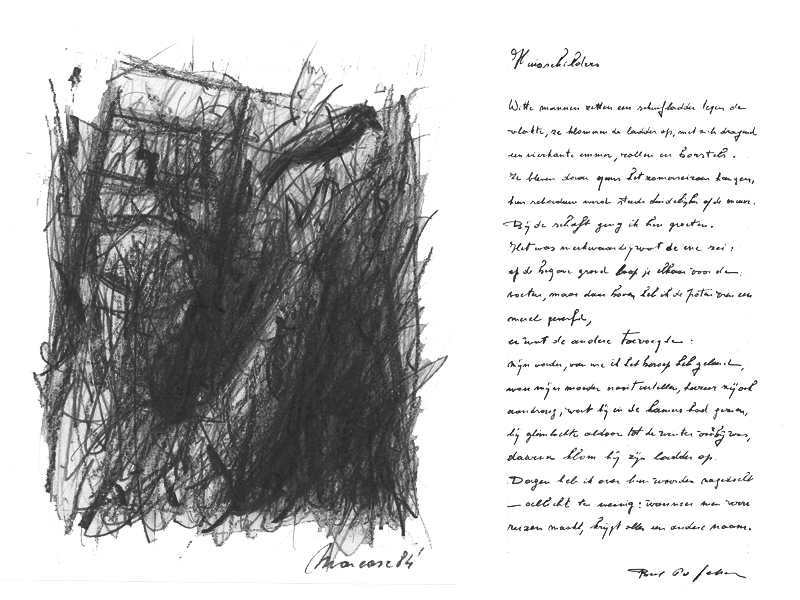 Huisschilders
Witte mannen zetten een schuifladder tegen de
vlakte, ze klommen de ladder op, met zich dragend
een vierkante emmer, rollen en borstels.
Ze bleven daar gans het zomerseizoen hangen,
hun schaduw werd steeds duidelijker op de muur.
Bij de schaft ging ik hen groeten.
Het was merkwaardig wat de ene zei:
op de begane grond loop je elkaar voor de
voeten, maar daar boven heb ik de poten van een
merel geverfd,
en wat de andere toevoegde:
mijn vader, van wie ik het beroep heb geleerd,
wou mijn moeder nooit vertellen, hoezeer zij ook
aandrong, wat hij in de kamers had gezien,
hij glimlachte aldoor tot de winter voorbij was,
daarna klom hij zijn ladder op.
Dagen heb ik over hun woorden nagedacht
— wellicht te weinig: wanneer men verre
reizen maakt, krijgt alles een andere naam.
84'